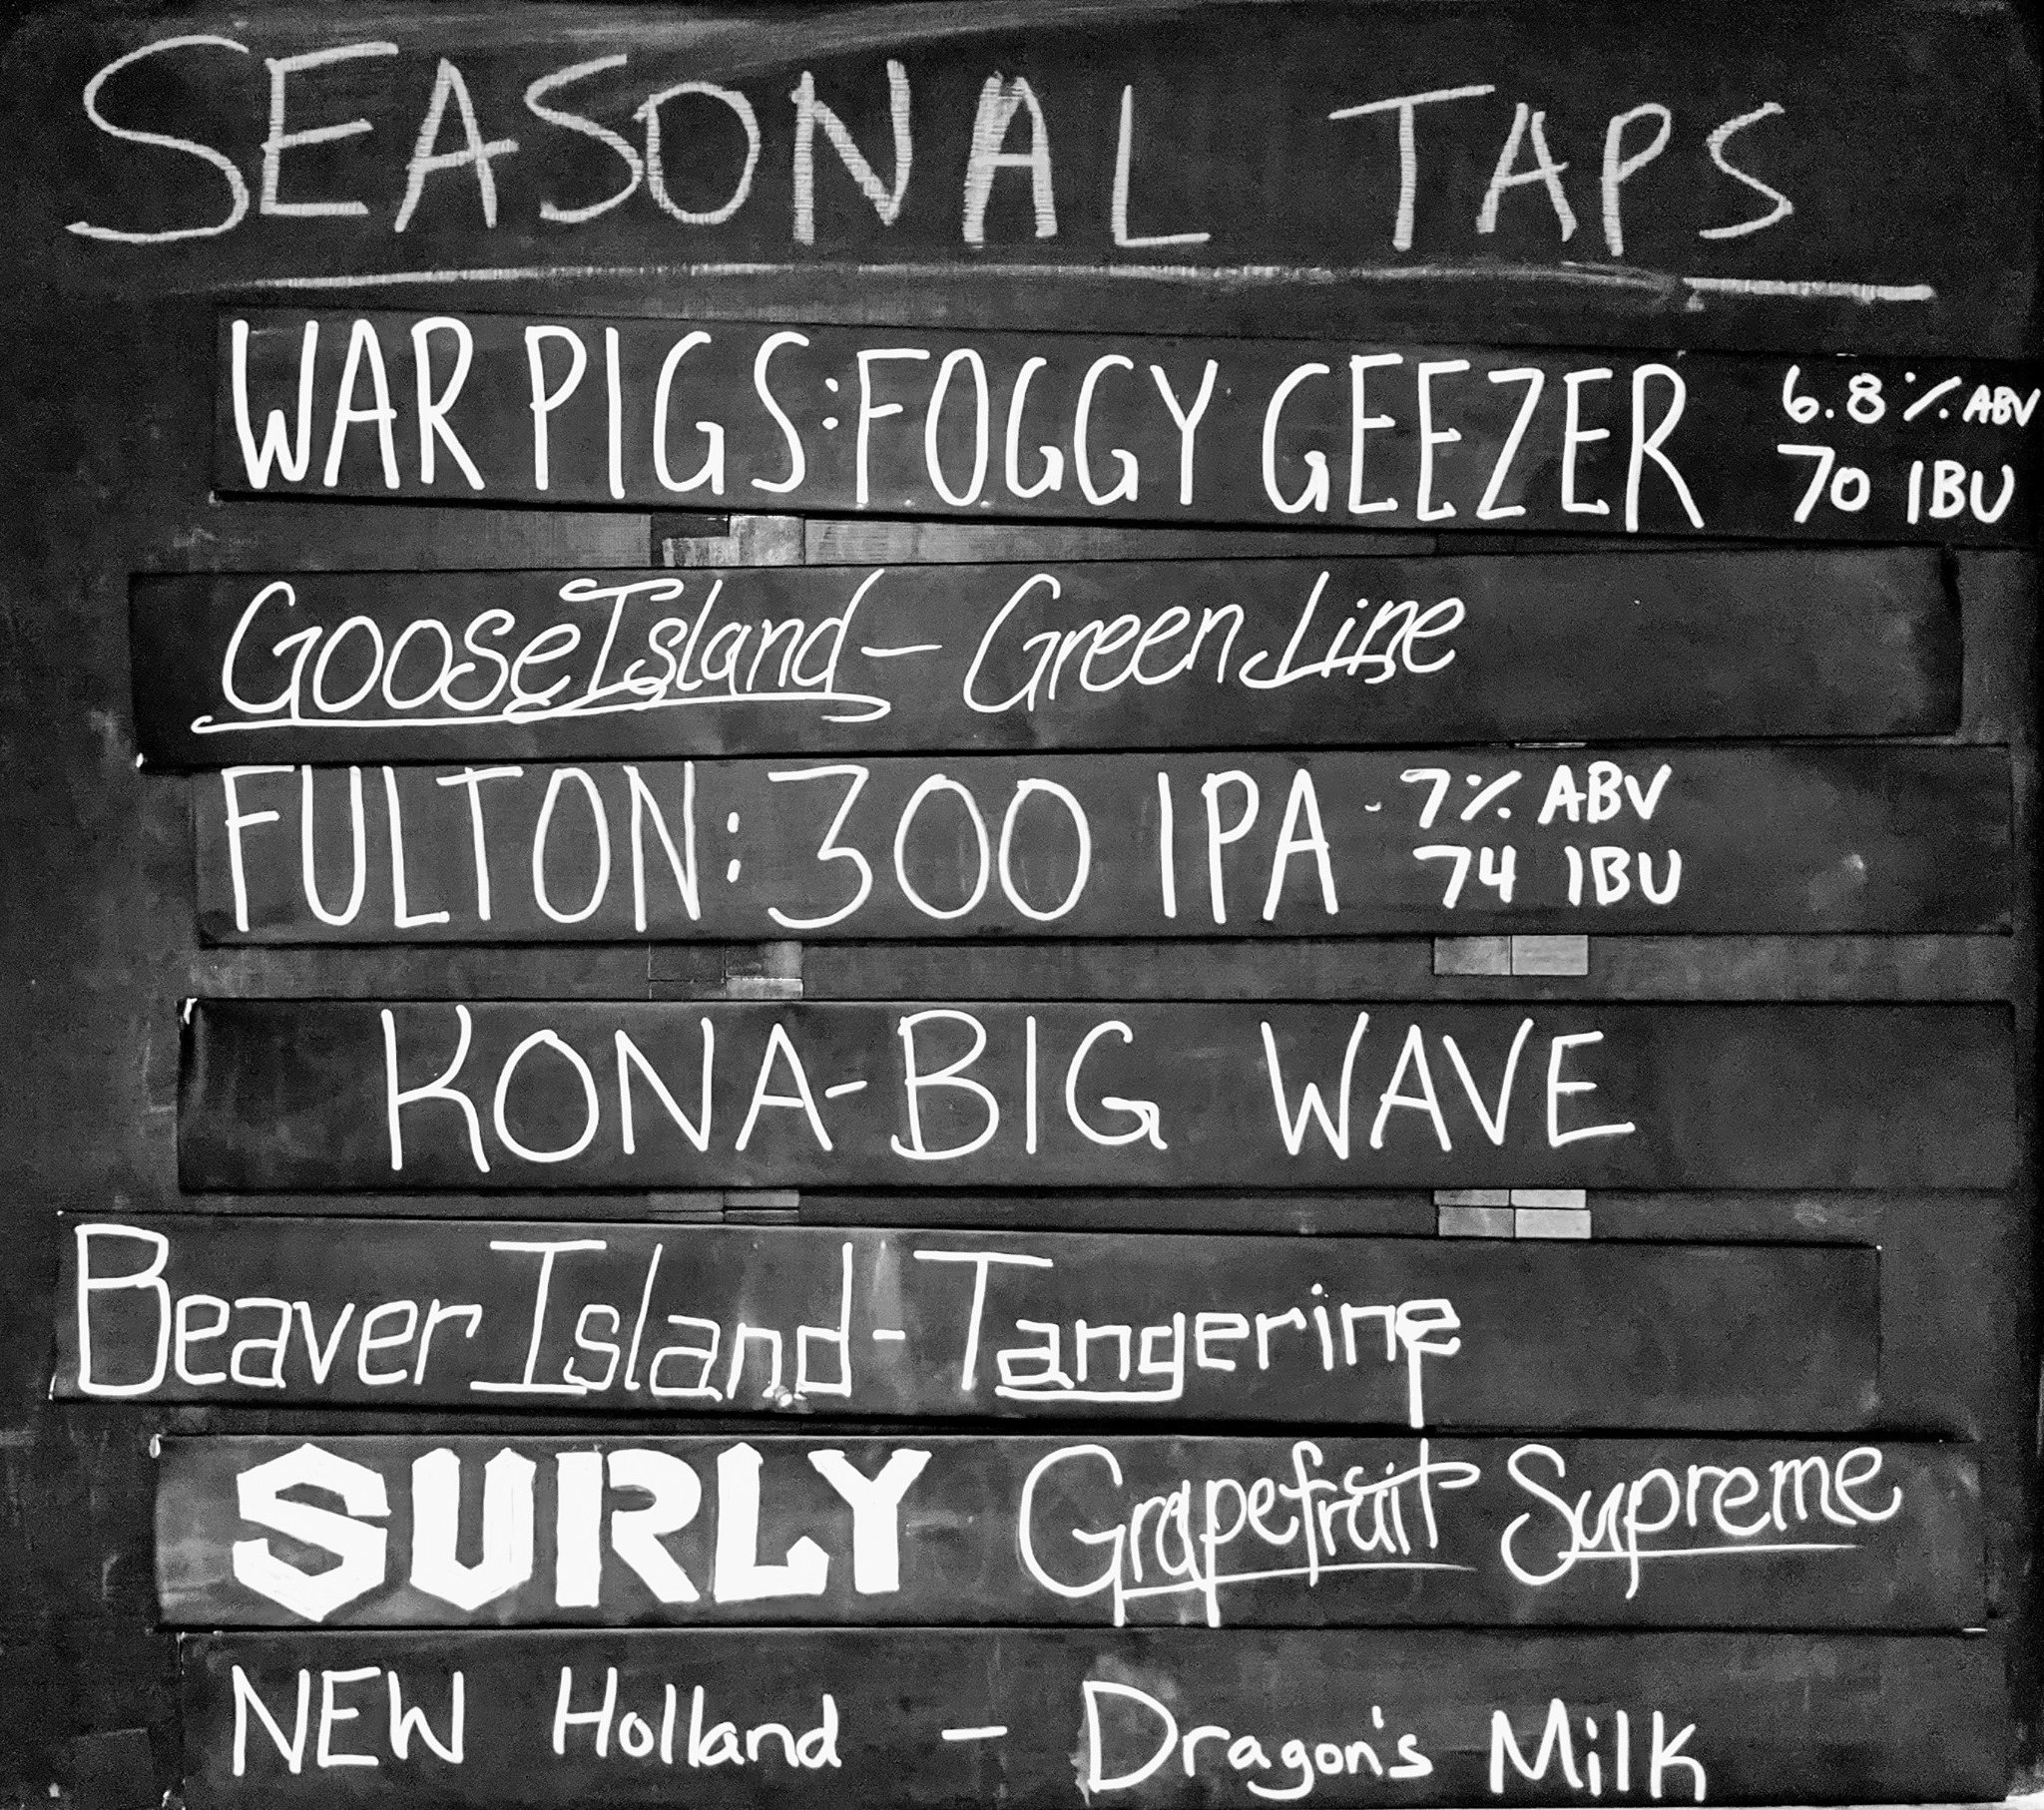 SEASONAL TAPS
WAR PIGS: FOGGY GEEZER 6.8% ABV
70 IBU
Goose Island - Green Line
FULTON: 300 IPA - 7% ABV
74 IBU
KONA-BIG WAVE
Beaver Island - Tangerine
SURLY Grapefruit Supreme
NEW Holland - Dragon's Milk